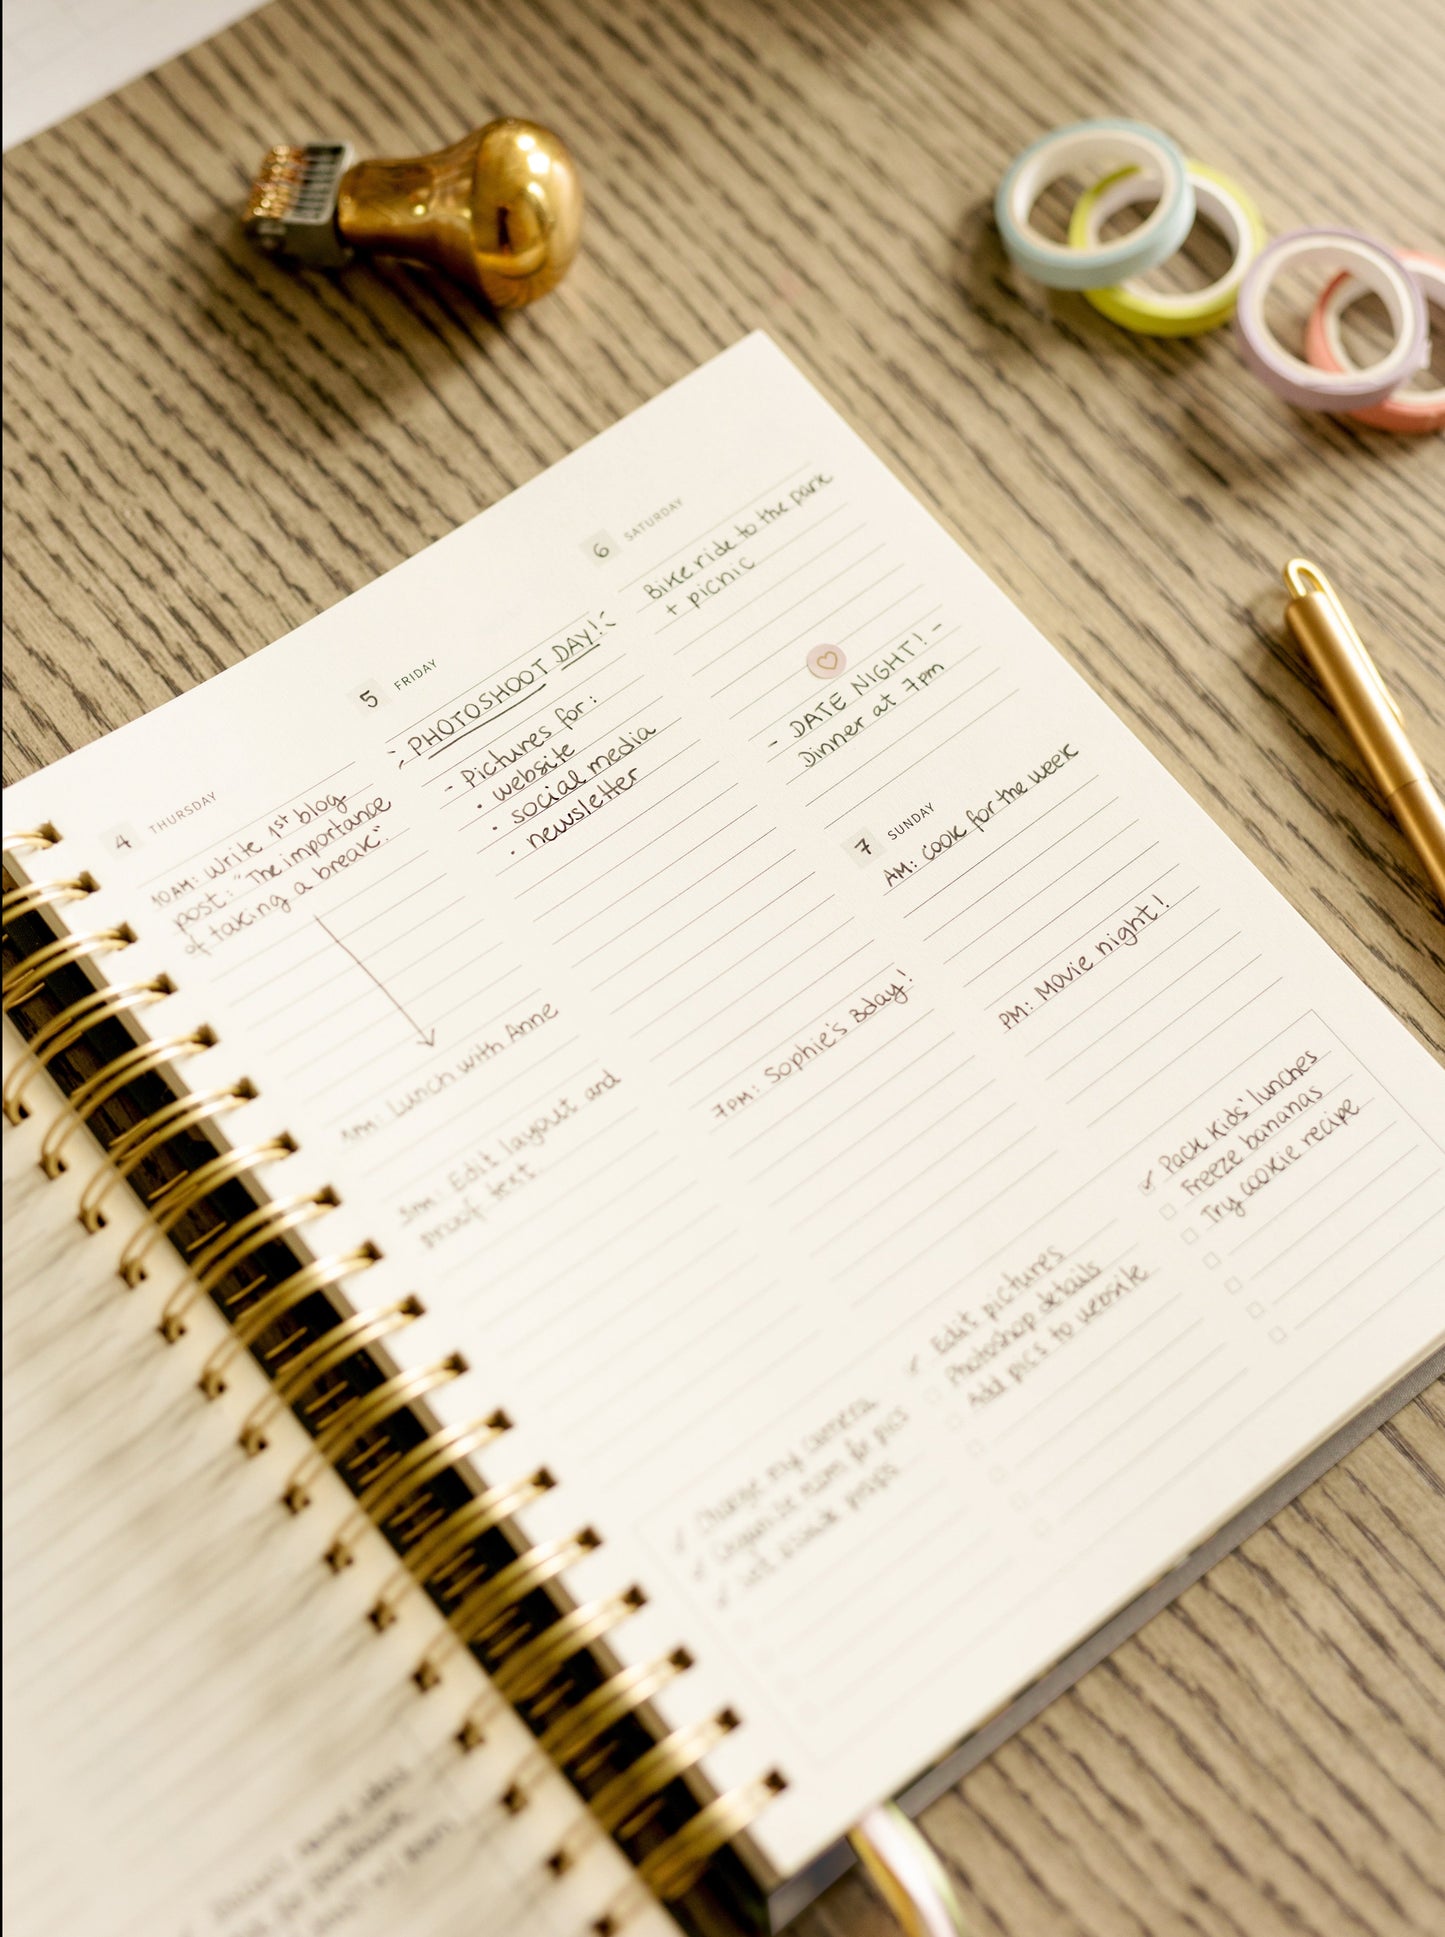 4 THURSDAY
10AM: Write 1st blog
post: "The importance
of taking a break".
1PM: Lunch with Anne
3PM: Edit layout and
proof text
5 FRIDAY
PHOTOSHOOT DAY!
- Pictures for:
• website
• social media
• newsletter
7PM: Sophie's Bday!
6 SATURDAY
Bike ride to the park
+ picnic
- DATE NIGHT! -
Dinner at 7pm
7 SUNDAY
AM: cook for the week
PM: Movie night!
✓ Charge my camera
✓ Organize room for pics
✓ props
✓ Edit pictures
Photoshop details
Add pics to website
✓ Pack kids' lunches
Freeze bananas
Try cookie recipe